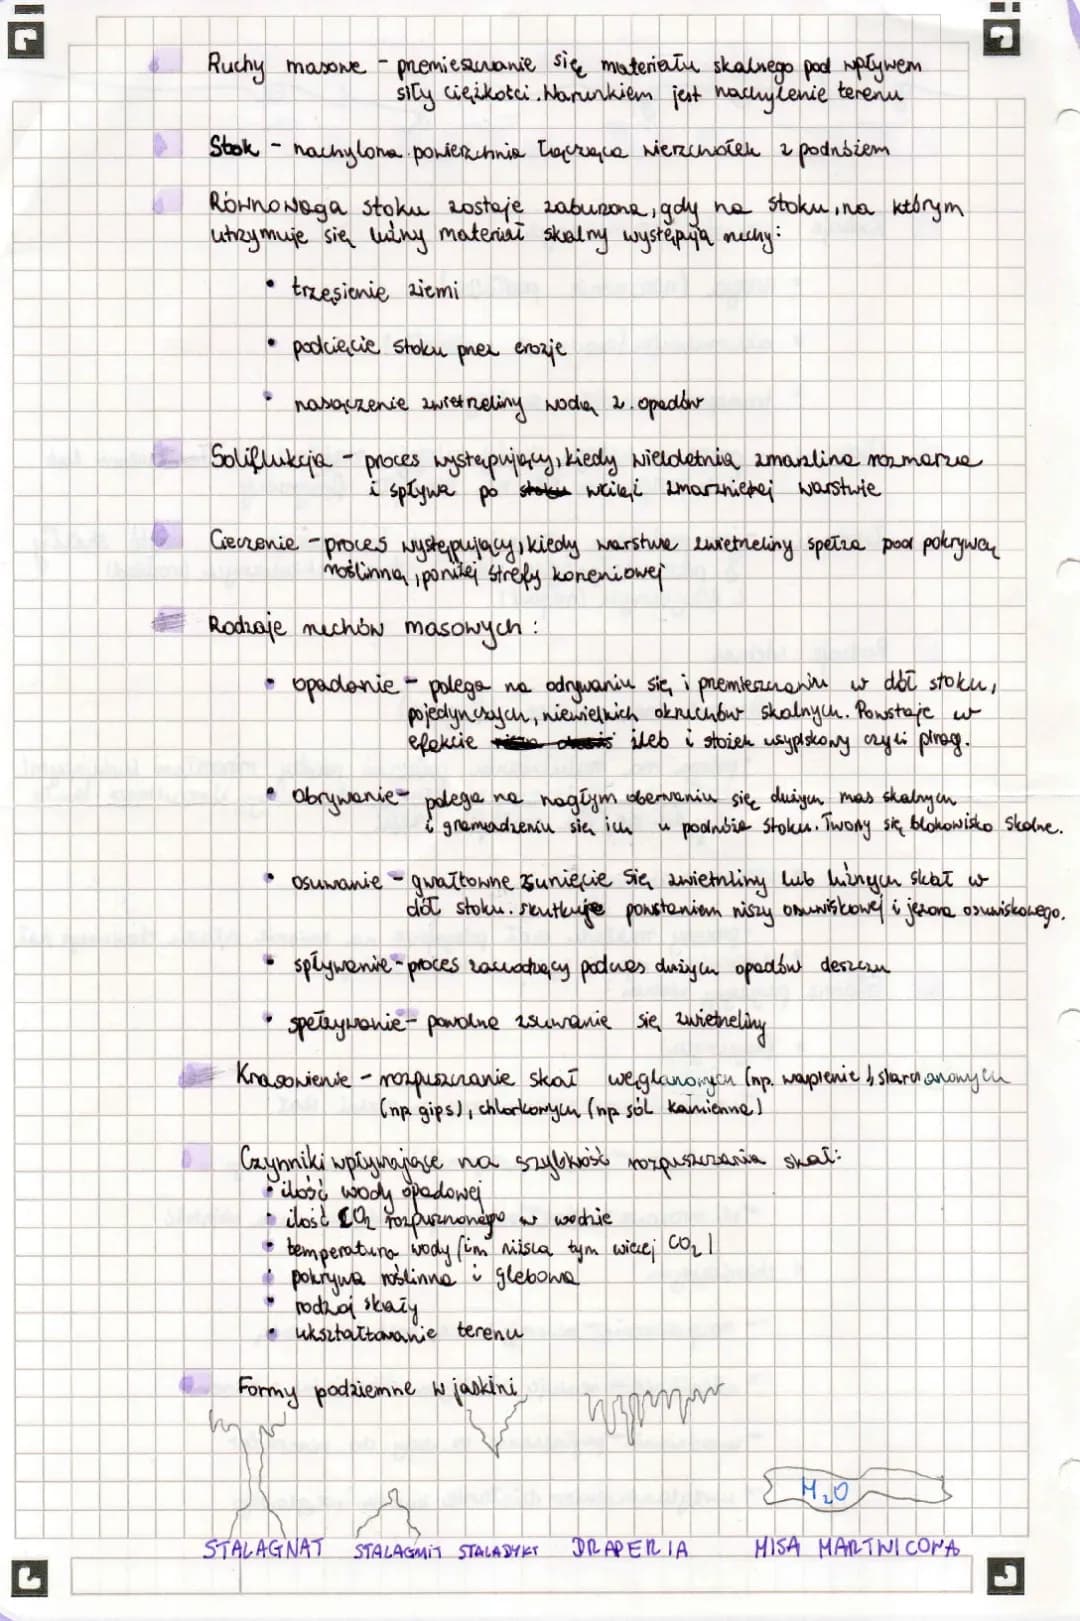 Ruchy masowe - przemieszczanie się materiału skalnego pod wpływem
siły ciężkości. Warunkiem jest nachylenie terenu
Stok - nachylona powierzchnia łącząca wierzchołek z podnóżem
Równowaga stoku zostaje zaburzona, gdy na stoku, na którym
utrzymuje się luźny materiał skalny występują ruchy:
• trzęsienie ziemi
• podcięcie stoku przez erozje
• nasączenie zwietrzeliny wodą z opadów
Soliflukcja - proces występujący, kiedy wieloletnia zmarzlina rozmarza
i spływa po wciąż zmarzniętej warstwie
Cieczenie - proces występujący, kiedy warstwa zwietrzeliny spełza pod pokrywą
roślinną, poniżej strefy korzeniowej
Rodzaje ruchów masowych:
• opadanie - polega na odrywaniu się i przemieszczaniu w dół stoku,
pojedynczych, niewielkich okruchów skalnych. Powstaje w
efekcie żleb i stożek usypiskowy czyli piarg.
• obrywanie - polega na nagłym oberwaniu się dużych mas skalnych
i gromadzeniu się ich u podnóża stoku. Tworzy się blokowisko skalne.
• osuwanie - gwałtowne zsunięcie się zwietrzliny lub luźnych skał w
dół stoku. skutkuje powstaniem niszy osuwiskowej i jeziora osuwiskowego.
• spływanie - proces zachodzący podczas dużych opadów deszczu
• spełzywanie - powolne zsuwanie się zwietrzeliny
Krasowienie - rozpuszczanie skał węglanowych (np. wapienie), siarczanowych
(np gips), chlorkowych (np sól kamienna)
Czynniki wpływające na szybkość rozpuszczania skał:
• ilość wody opadowej
• ilość CO₂ rozpuszczonego w wodzie
• temperatura wody (im niższa tym więcej CO₂)
• pokrywa roślinna i glebowa
• rodzaj skały
• ukształtowanie terenu
Formy podziemne w jaskini
H₂O
STALAGNAT STALAGMIT STALAKTYT DRAPERIA MISA MARTWICOWA